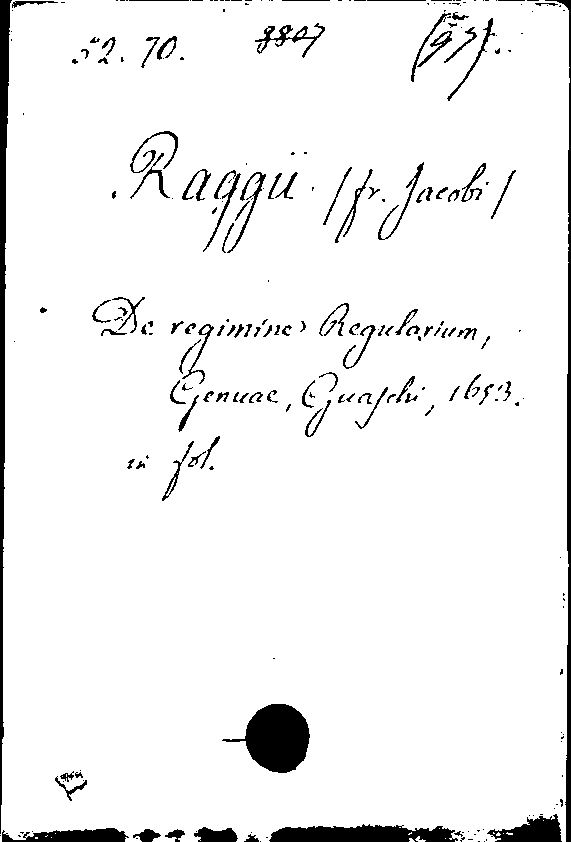 52. 70. 8807 (97).
Raggii /fr. Jacobi/
De regimine Regularium,
Genuae, Guaschi, 1653.
in fol.